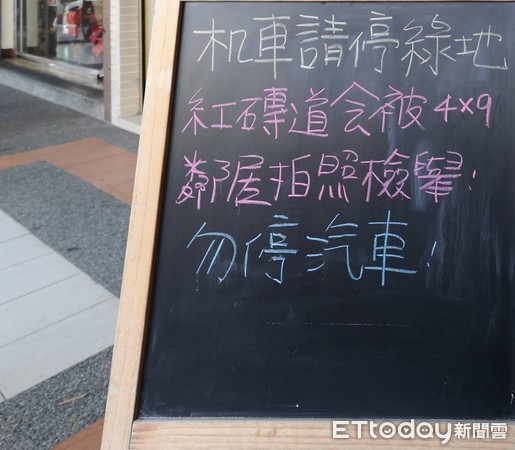 机車請停綠地
紅磚道会被4×9
鄰居拍照檢舉!
勿停汽車!
ETtoday新聞雲